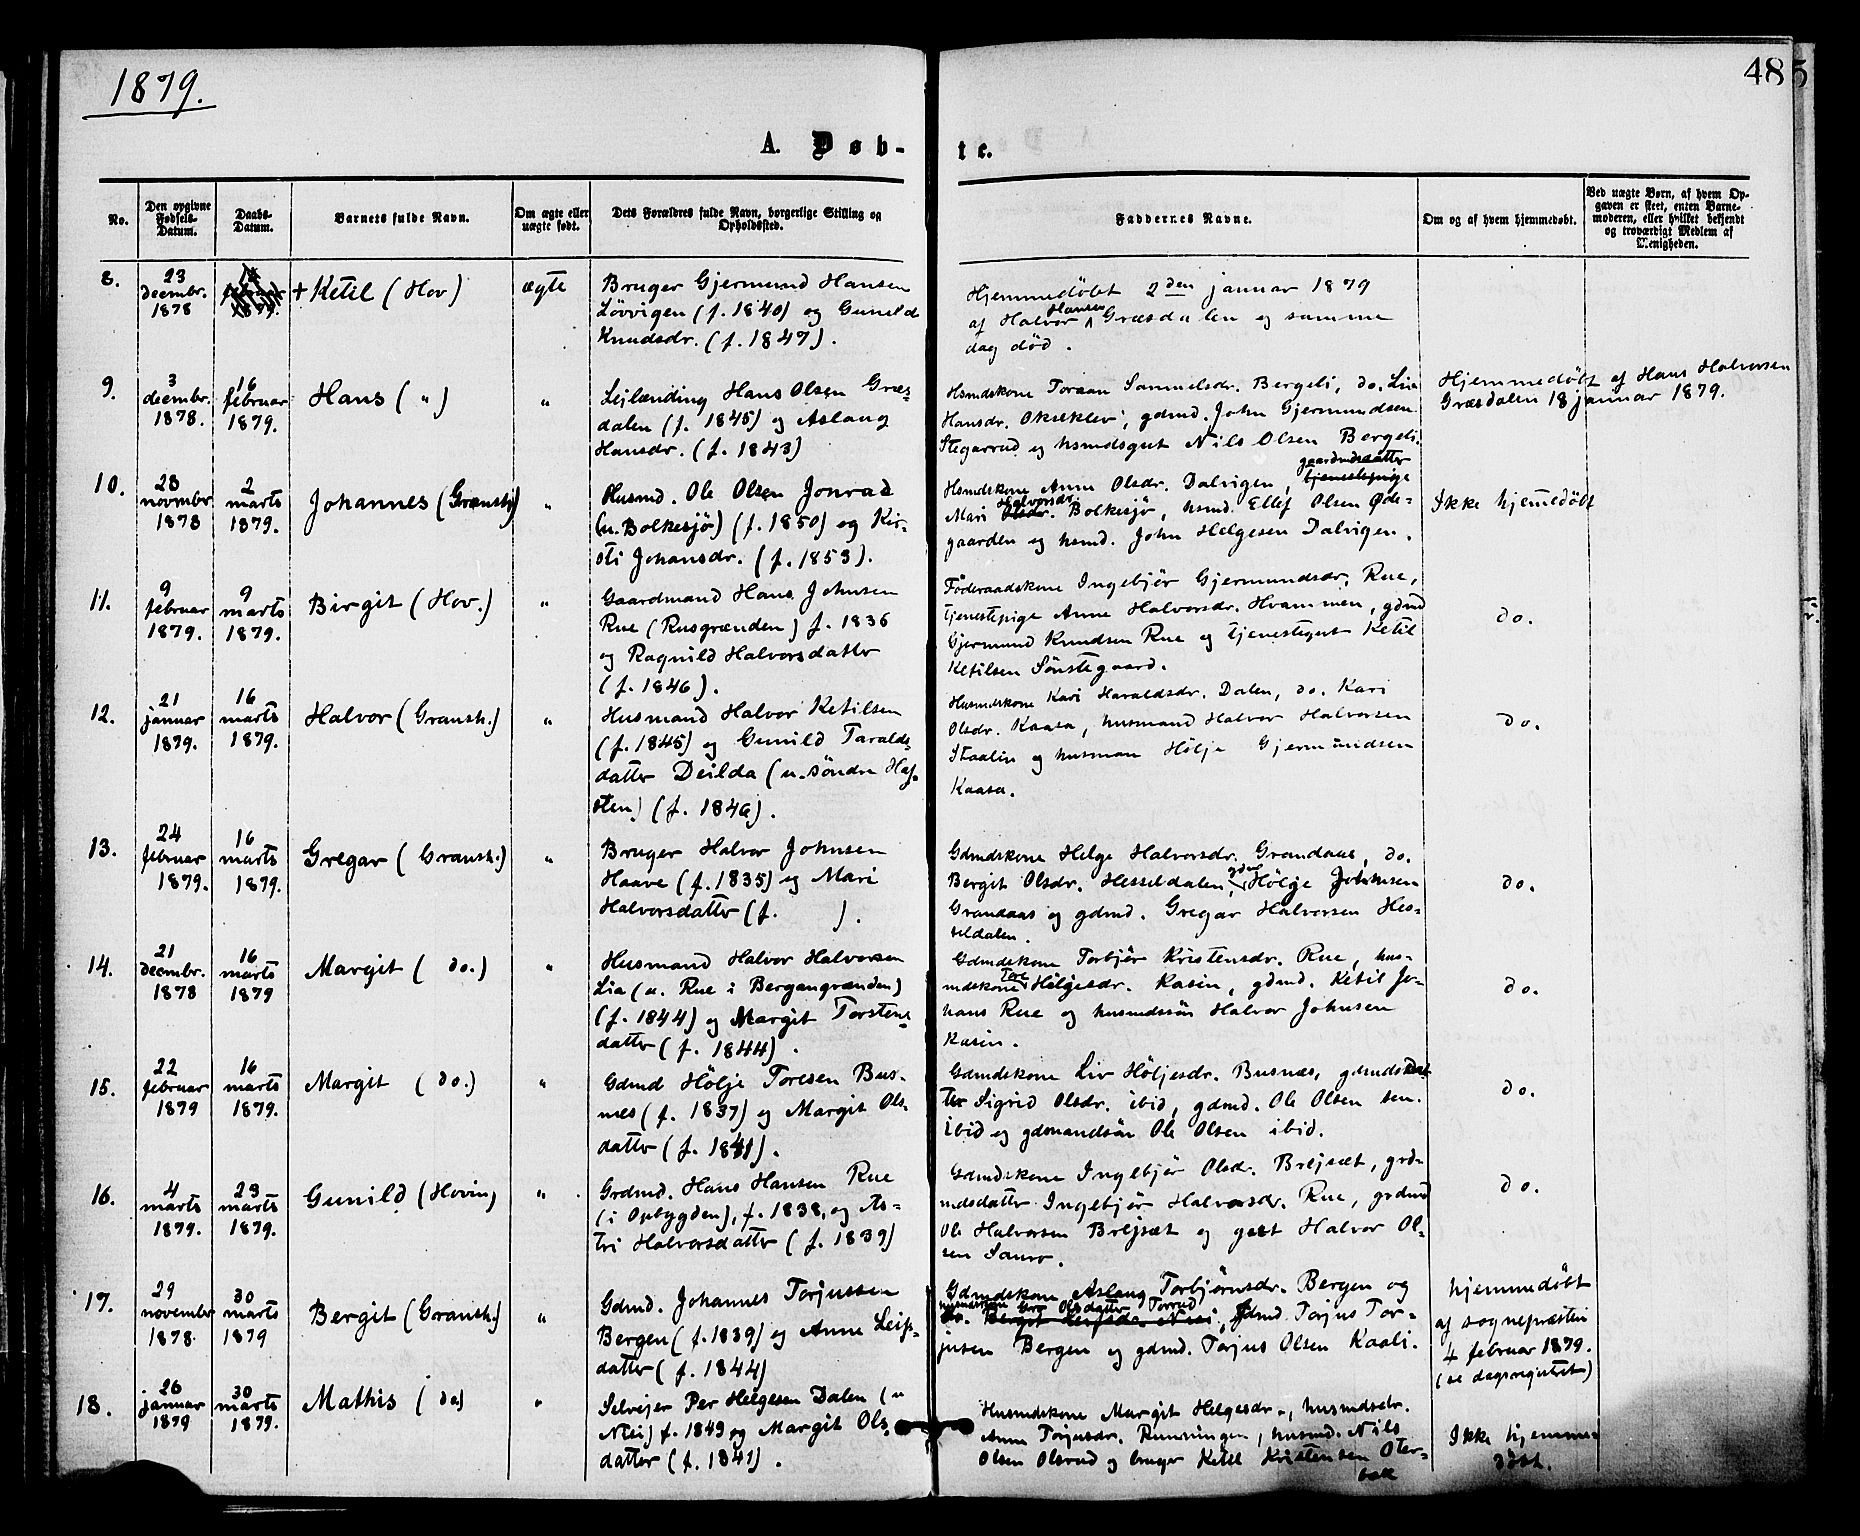 1879.
485
A. Døb-
te.
No.
Den opgivne Fødsels-Datum.
Daabs-Datum.
Barnets fulde Navn.
Om ægte eller uægte født.
Dets Forældres fulde Navn, borgerlige Stilling og Opholdssted.
Faddernes Navne.
Om og af hvem hjemmedøbt.
Ved uægte Børn, af hvem Opgaven er skeet, enten Barnemoderen, eller hvilket bekjendt og troværdigt Medlem af Menigheden.
8.
23
decembr.
1878
+ Ketil (Hov)
ægte
Bruger Gjermund Hansen
Løvvigen (f. 1840) og Gunild
Knudsdr. (f. 1847).
Hjemmedøbt 2den januar 1879
af Halvor Hansen Græsdalen og samme
dag død.
9.
3
decembr.
1878.
16
februar
1879.
Hans ( " )
"
Lejlænding Hans Olsen Græs-
dalen (f. 1845) og Aslaug
Hansdr. (f. 1843)
Hsmdskone Toraan Samuelsdr. Bergeli, do. Lia
Hansdr. Okseklev, gdmd. John Gjermundsen
Stegarrud og hsmdsgut Nils Olsen Bergeli.
Hjemmedøbt af Hans Halvorsen
Græsdalen 18 januar 1879.
10.
23
novmbr
1878
2
marts
1879.
Johannes (Gransh)
"
Husmd. Ole Olsen Jonrud
(u. Bolkesjø) (f. 1850) og Kir-
sti Johansdr. (f. 1853).
Hsmdskone Anne Olsdr. Dalvigen, gaardmdsdatter
Mari Halvorsdr. Bolkesjø, hsmd. Ellef Olsen Øde-
gaarden og hsmd. John Helgesen Dalvigen.
Ikke hjemmedøbt
11.
9
februar
1879.
9
marts
1879.
Birgit (Hov.)
"
Gaardmand Hans Johnsen
Rue (Rusgrænden) f. 1836
og Ragnild Halvorsdatter
(f. 1846).
Føderaadskone Ingebjør Gjermundsdr. Rue,
tjenestepige Anne Halvorsdr. Hvammen, gdmd
Gjermund Knudsen Rue og tjenestegut Ketil
Ketilsen Sønstegaard.
do.
12.
21
januar
1879.
16
marts
1879.
Halvor (Gransh.)
"
Husmand Halvor Ketilsen
(f. 1845) og Gunild Taralds-
datter Deilda (u. søndre Haf-
sten) (f. 1846).
Husmdskone Kari Haraldsdr. Dalen, do. Kari
Olsdr. Kaasa, husmand Halvor Halvorsen
Staalin og husman Hølje Gjermundsen
Kaasa.
do.
13.
24
februar
1879.
16
marts
1879.
Gregar (Gransh.)
"
Bruger Halvor Johnsen
Haave (f. 1835) og Mari
Halvorsdatter (f. ).
Gdmdskone Helge Halvorsdr. Grandaas, do.
Bergit Olsdr. Hesseldalen, gdmd Hølje Johnsen
Grandaas og gdmd. Gregar Halvorsen Hes-
seldalen.
do.
14.
21
decembr.
1878
16
marts
1879
Margit ( do. )
"
Husmand Halvor Halvorsen
Lia (u. Rue i Bergangrænden)
(f. 1844) og Margit Torstens-
datter (f. 1844).
Gdmdskone Torbjør Kristensdr. Rue, hus-
mdskone Tore Høljesdr. Kasin, gdmd. Ketil Jo-
hans Rue og husmdssøn Halvor Johnsen
Kasin.
do.
15.
22
februar
1879
16
marts
1879.
Margit ( do. )
"
Gdmd Hølje Toresen Bus-
næs (f. 1837) og Margit Ols-
datter (f. 1841).
Gdmdskone Liv Høljesdr. Busnæs, gdmdsdat-
ter Sigrid Olsdr. ibid, gdmd. Ole Olsen sen.
ibid og gdmandsøn Ole Olsen ibid.
do.
16.
4
marts
1879.
23
marts
1879.
Gunild (Hovin)
"
Grdmd. Hans Hansen Rue
(i Opbygden), f. 1838, og As-
tri Halvorsdatter (f. 1839)
Gdmdskone Ingebjør Olsdr. Brejsæt, grd-
mdsdatter Ingebjør Halvorsdr. Rue, grdmd
Ole Halvorsen Brejsæt og gaet Halvor Ol-
sen Sauro.
do.
17.
29
novembr
1878.
30
marts
1879
Bergit (Gransh.)
"
Gdmd. Johannes Torjussen
Bergen (f. 1839) og Anne Leifs-
datter (f. 1844)
Gdmdskone Aslaug Torbjørnsdr. Bergen og
husmdskone Gro Olsdatter Torrud
do. Bergit Leifsdr Nisi, gdmd. Torjus Tor-
jusen Bergen og gdmd. Torjus Olsen Kaali.
hjemmedøbt
af sognepræsten
4 februar 1879.
(se dagsregistret)
18.
26
januar
1879
30
marts
1879.
Mathis ( do )
"
Selvejer Per Helgesen Dalen (u
Nisi) f. 1849 og Margit Ols-
datter (f. 1841).
Husmdskone Margit Helgesdr., husmdsdr.
Anne Torjusdr. Runningen, husmd. Nils
Olsen Olsrud og bruger Ketil Kristensen Oter-
bæk
Ikke hjemme-
døbt.